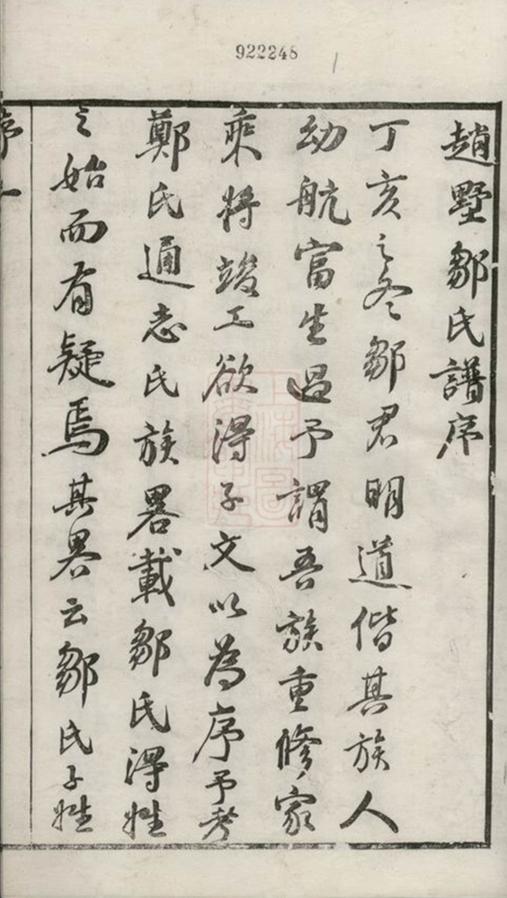 922248
趙墅鄒氏譜序
丁亥之冬鄒君明道偕其族人
幼航富生過予謂吾族重修家
乘將竣工欲得予文以為序予考
鄭氏通志氏族畧載鄒氏得姓
之始而有疑焉其畧云鄒氏子姓
序一